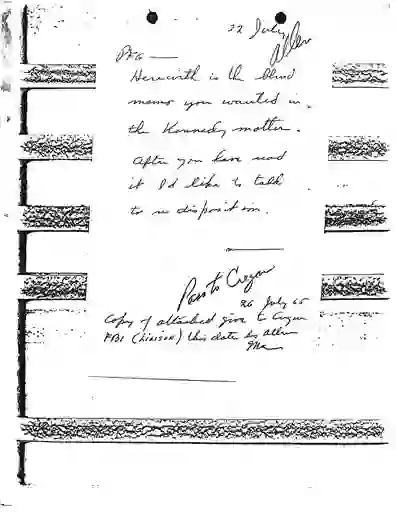 22 July
Allen
PFG —
Herewith is the blind
memo you wanted in
the Kennedy matter.
After you have read
it I'd like to talk
to re disposition.
Pass to Cregar
26 July 65
Copy of attached given to Cregar
FBI (Liaison) this date by Allen